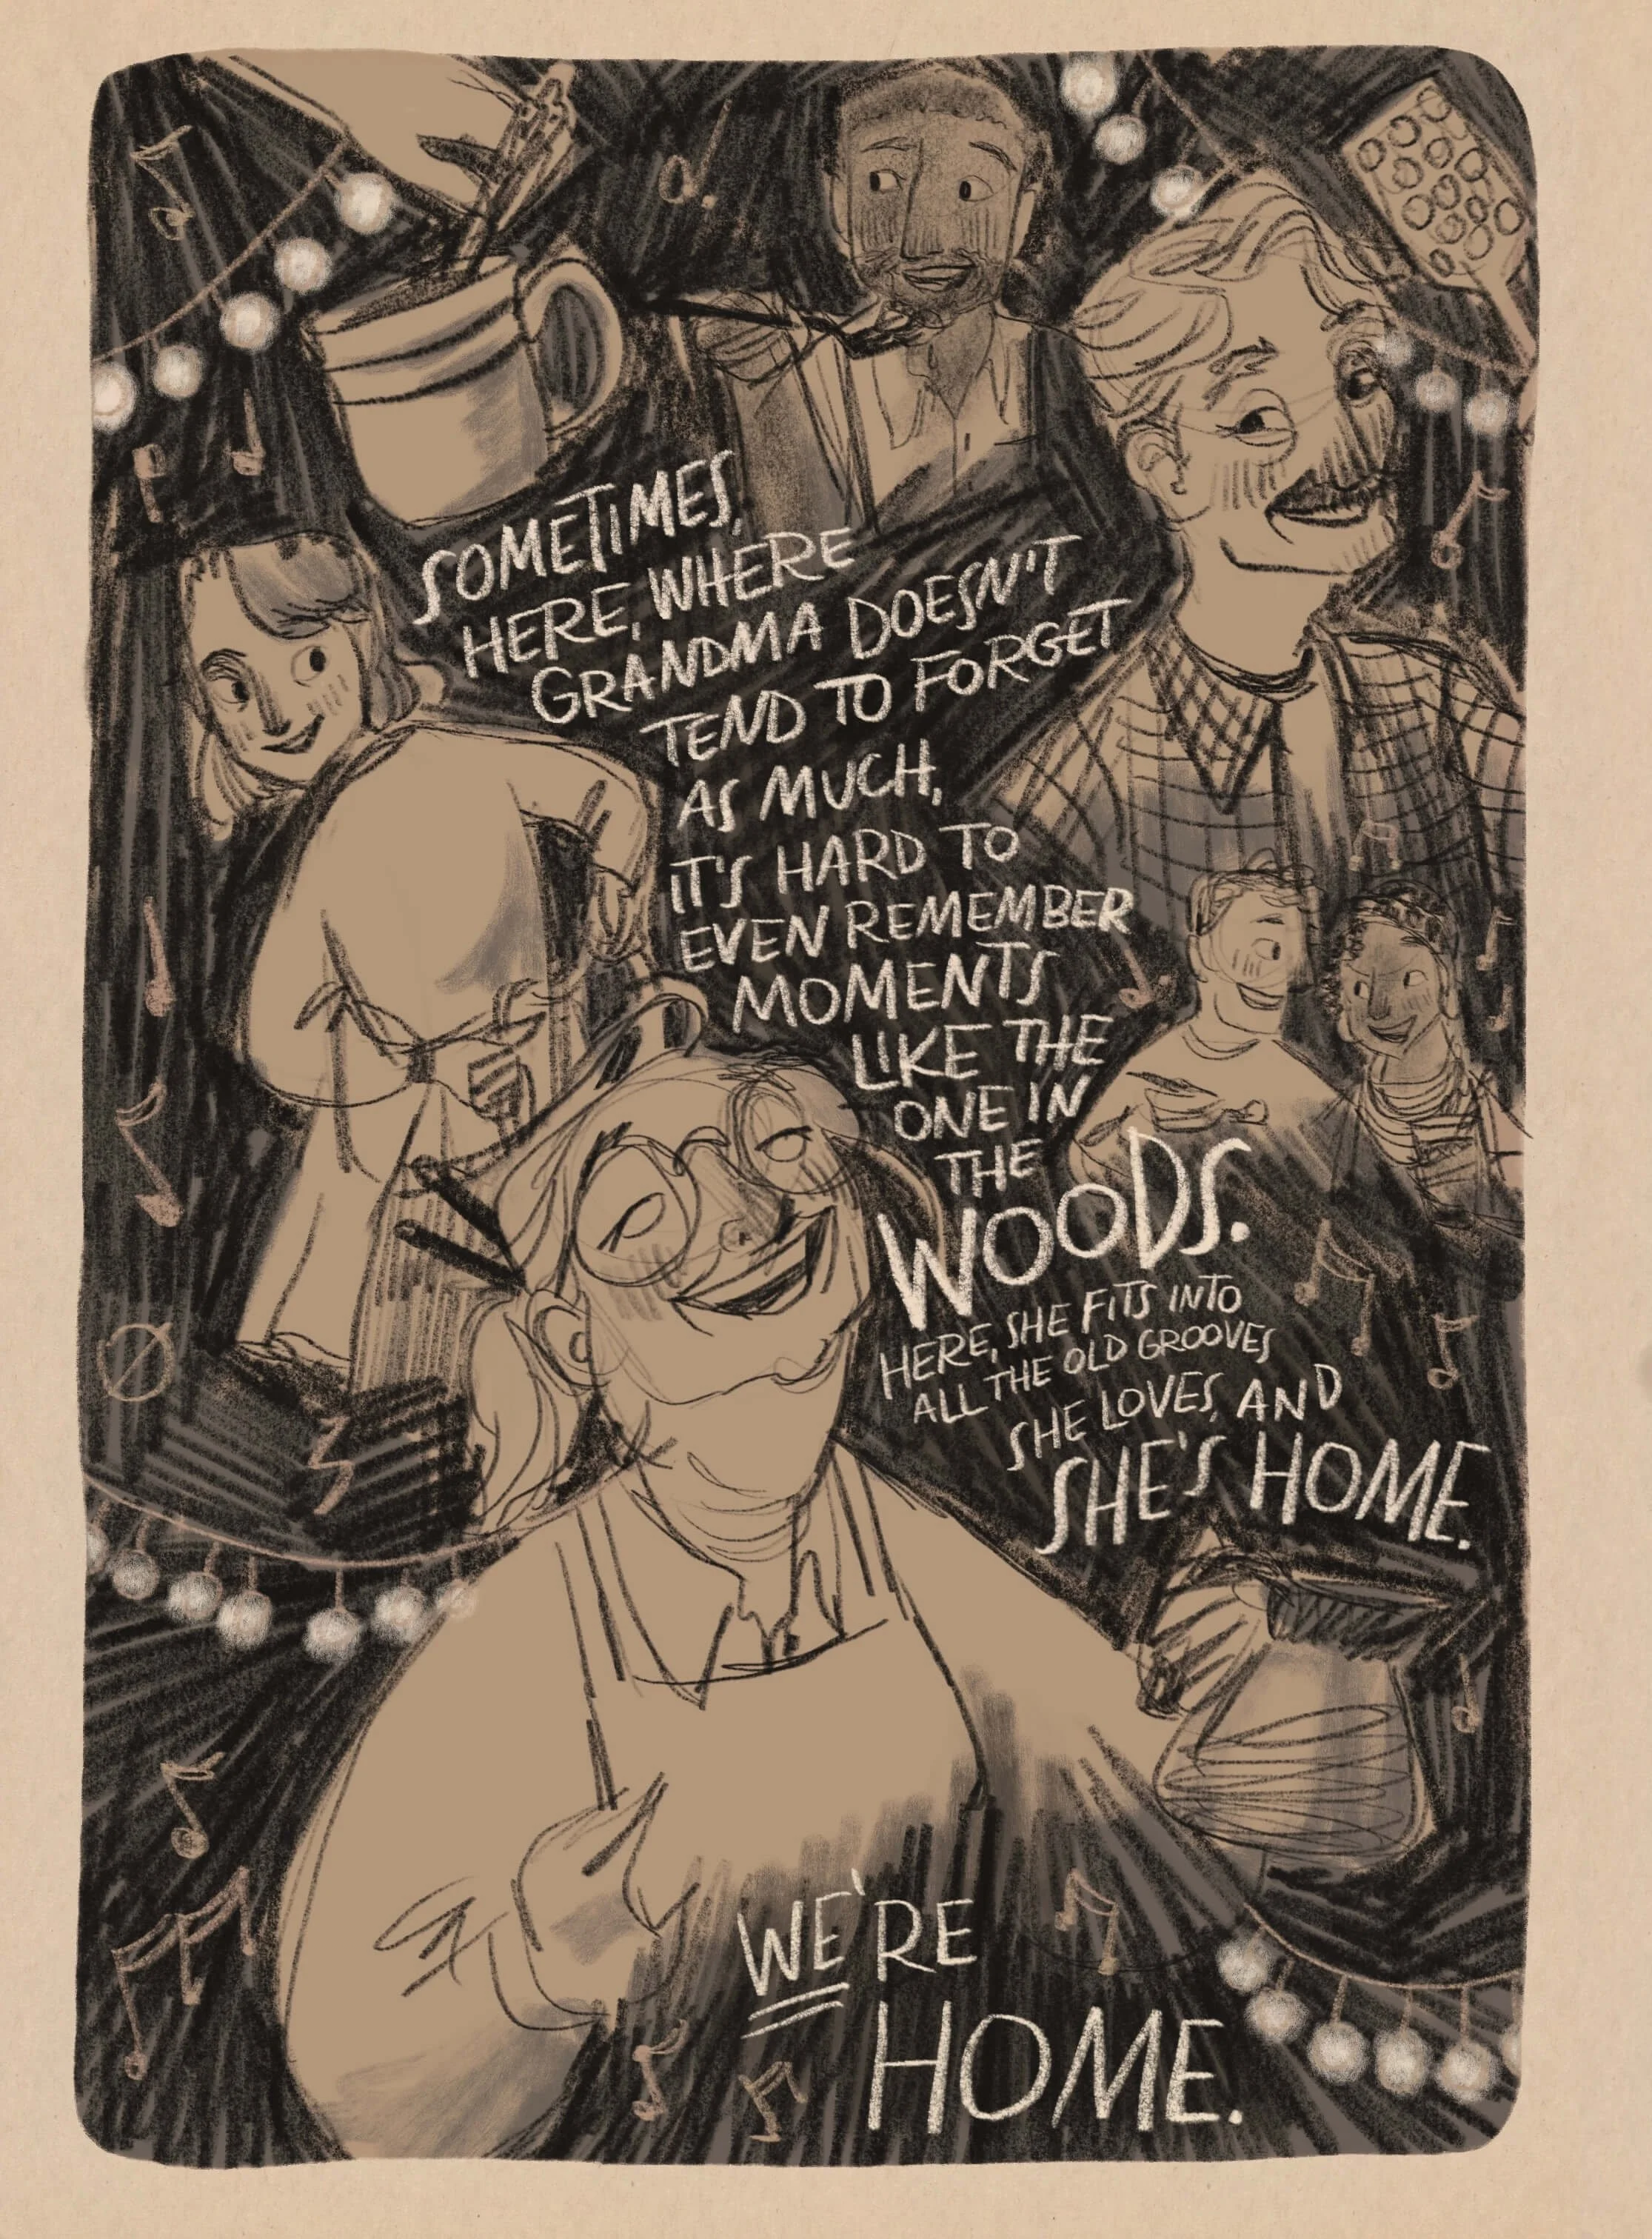 SOMETIMES,
HERE, WHERE
GRANDMA DOESN'T
TEND TO FORGET
AS MUCH,
IT'S HARD TO
EVEN REMEMBER
MOMENTS
LIKE THE
ONE IN
THE
WOODS.
HERE, SHE FITS INTO
ALL THE OLD GROOVES
SHE LOVES, AND
SHE'S HOME.
WE'RE
HOME.